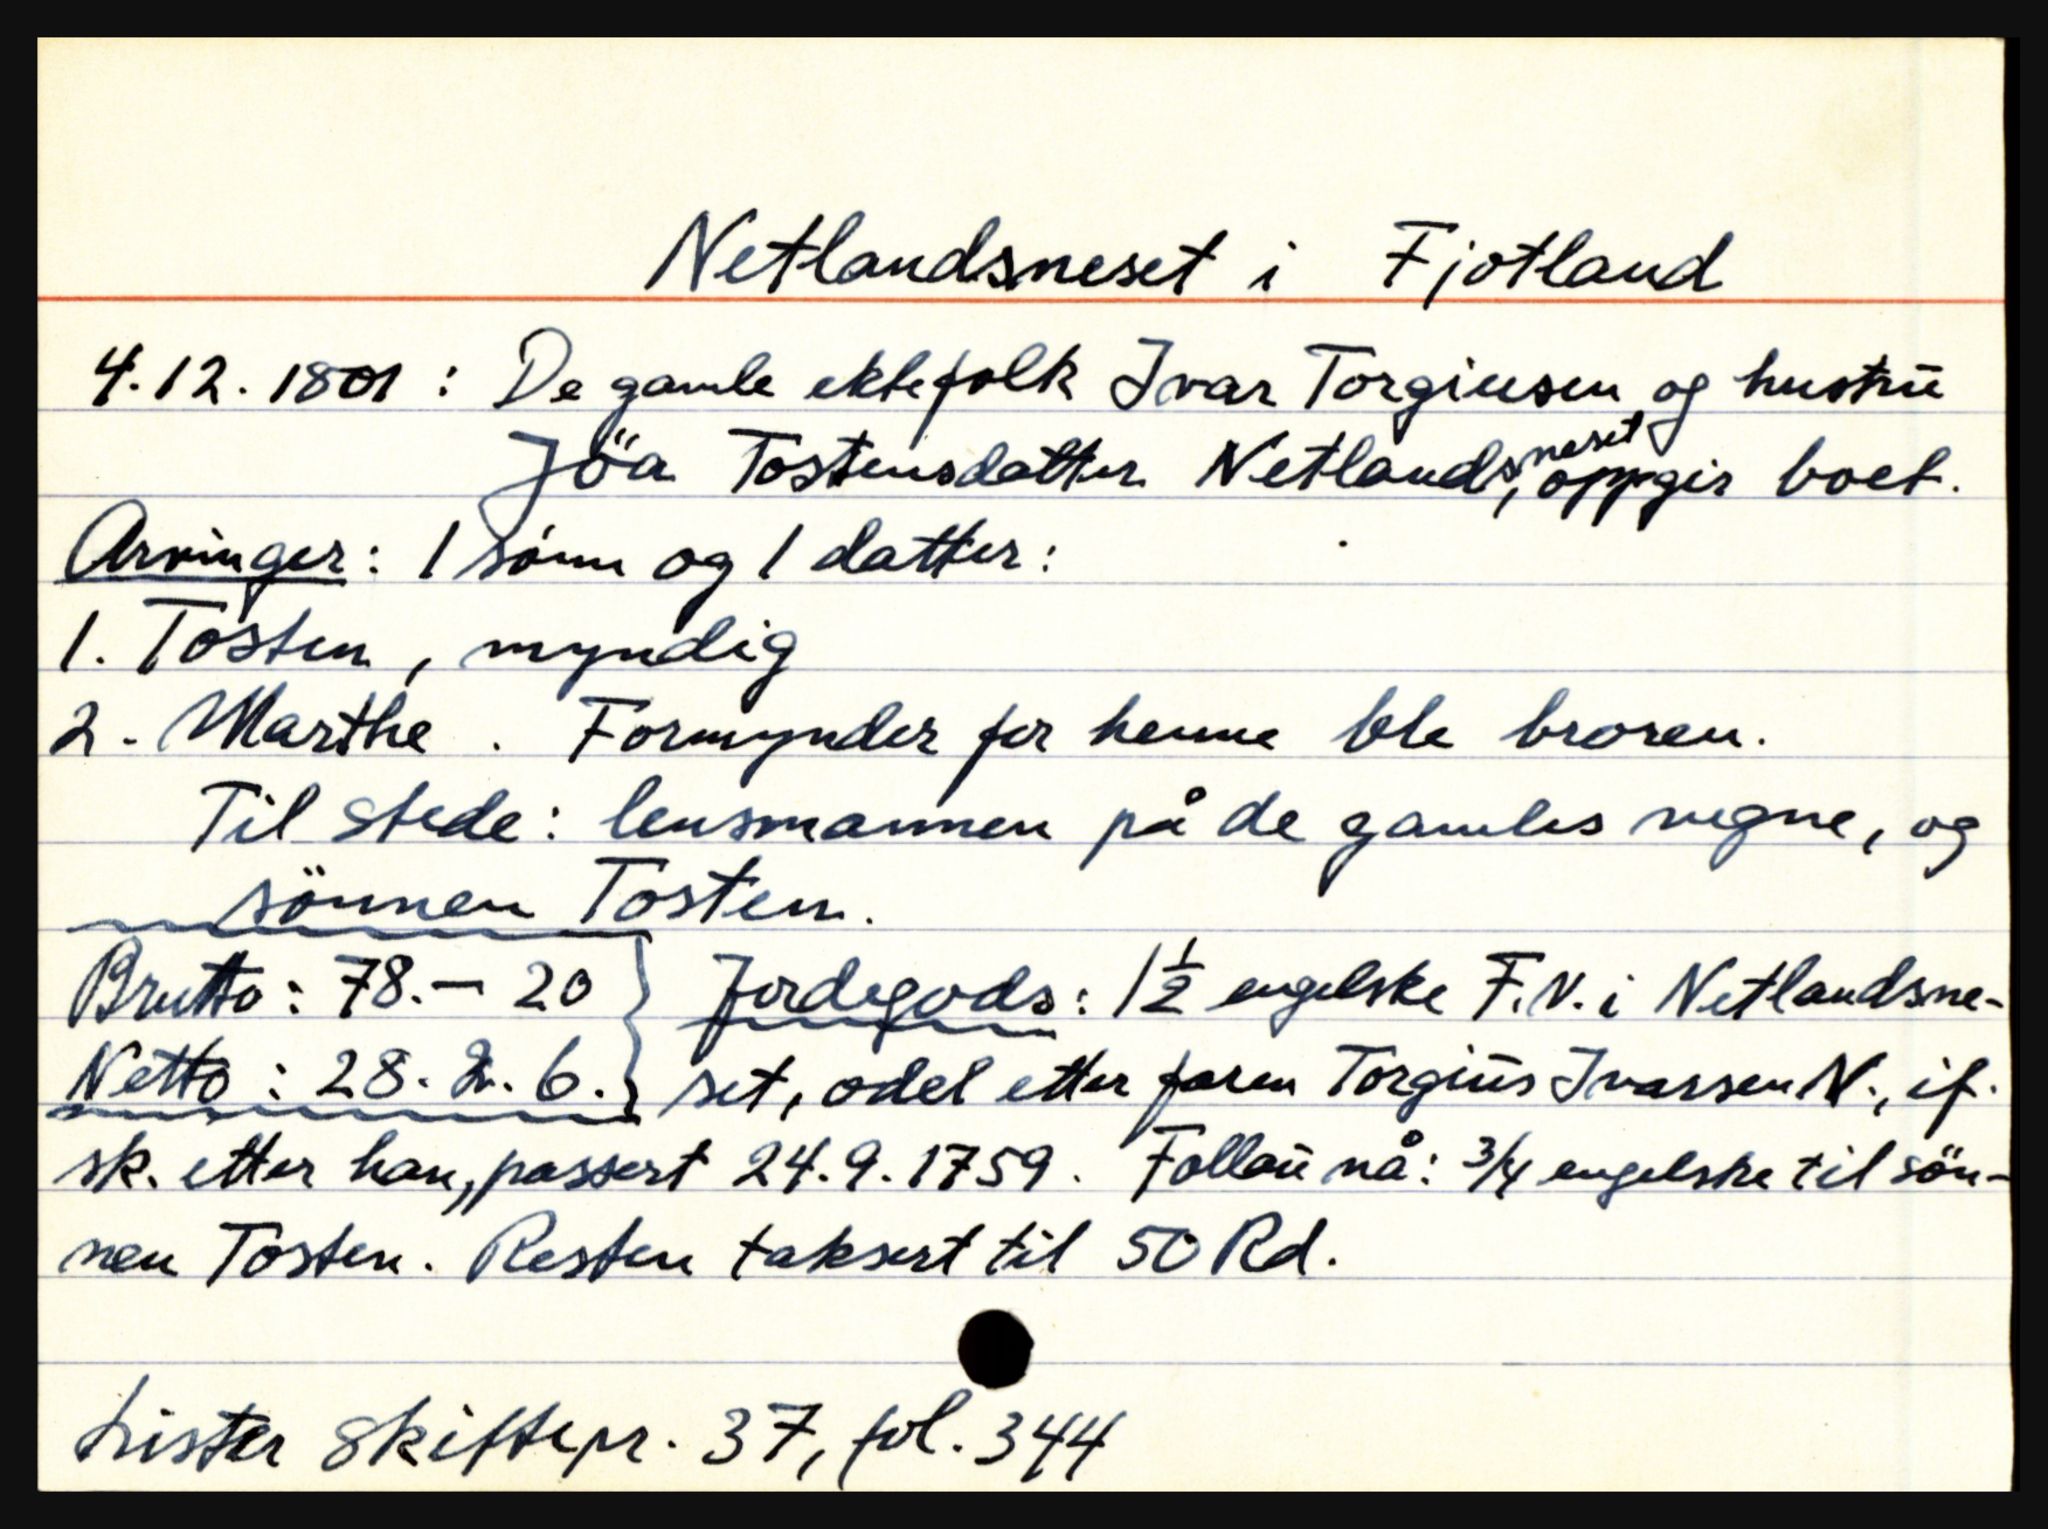 Netlandsneset i Fjotland
4.12.1801: De gamle ektefolk Ivar Torgiusen og hustrū
Jöa Tostensdatter Netlandsneset, oppgir boet.
Arvinger: 1 sönn og 1 datter:
1. Tosten, myndig
2. Marthe. Formynder for henne ble broren.
Til stede: lensmannen på de gamles vegne, og
sönnen Tosten.
Brutto: 78.– 20 } Jordegods: 1½ engelske F.N. i Netlandsne-
Netto: 28. 2. 6. } set, odel etter faren Torgiūs Ivarsen N., if.
sk. etter han, passert 24.9.1759. Follaū nå: 3/4 engelske til sön-
nen Tosten. Resten taksert til 50 Rd.
Lister skiftepr. 37, fol. 344